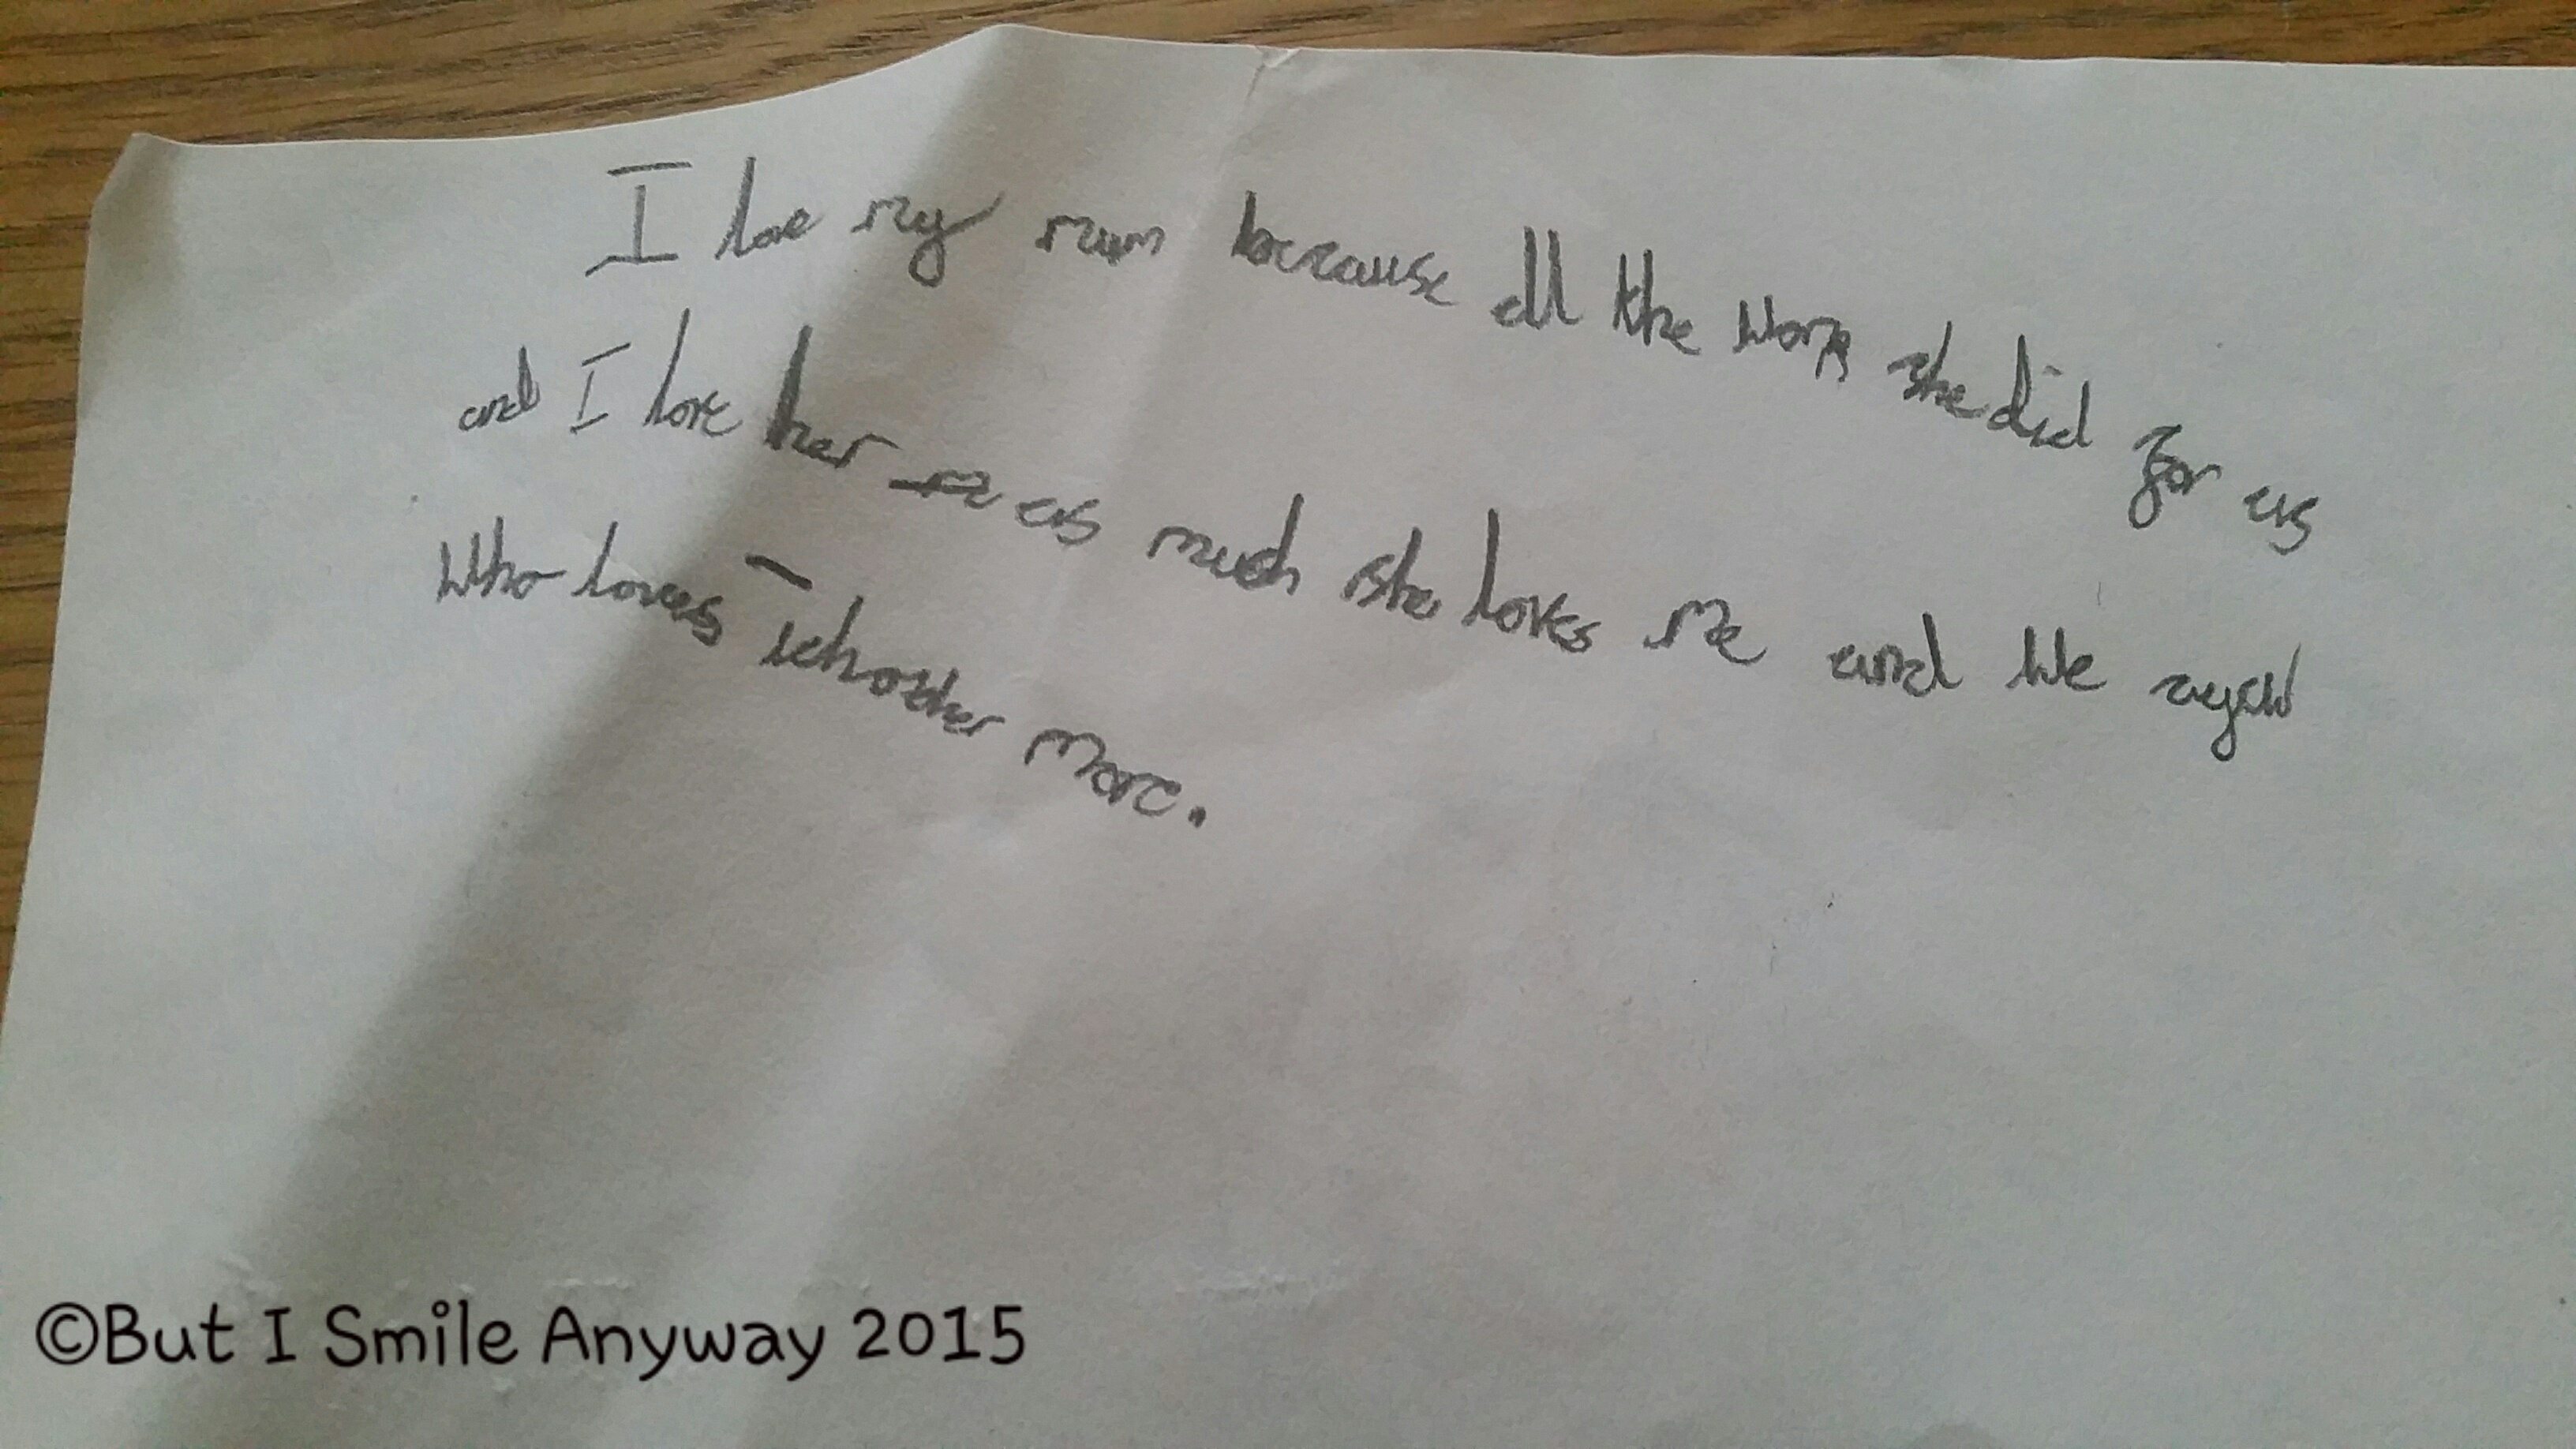 I love my mum because all the work she did for us
and I love her as much she loves me and we
who loves echother more.
©But I Smile Anyway 2015